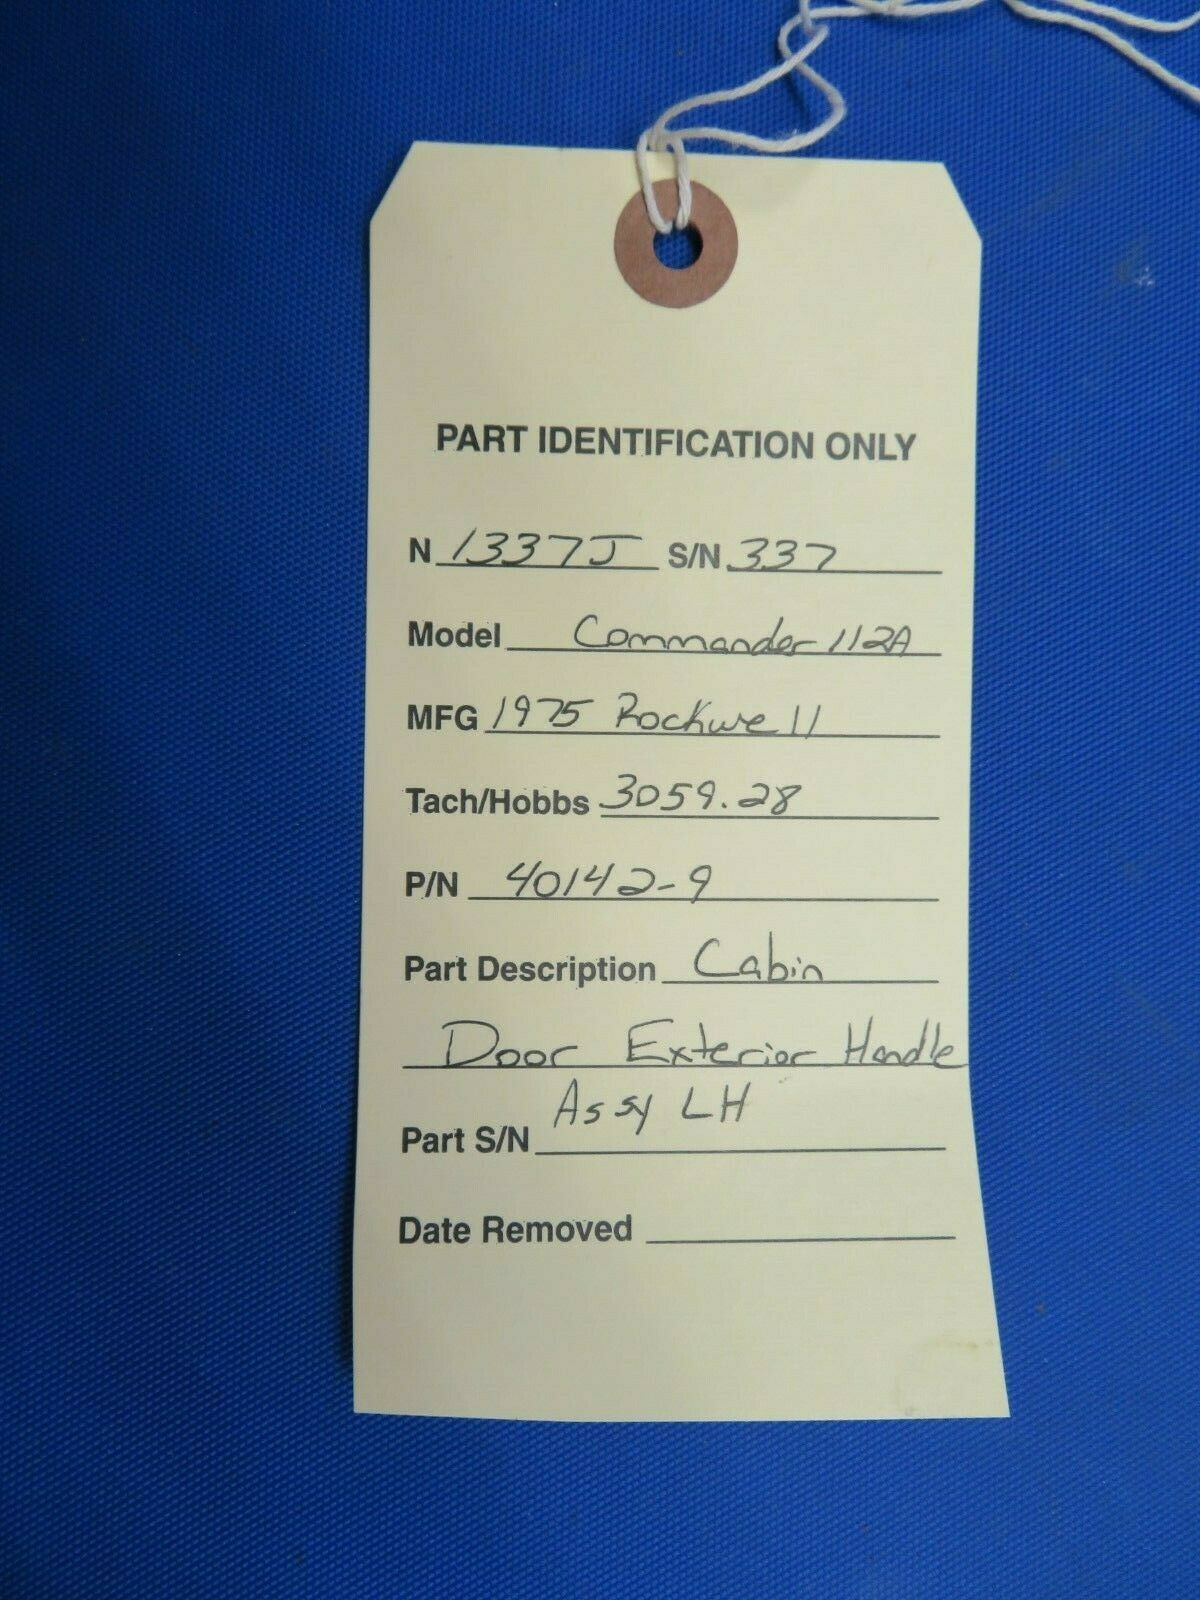 PART IDENTIFICATION ONLY
N 1337J S/N 337
Model Commander 112A
MFG 1975 Rockwell
Tach/Hobbs 3059.28
P/N 40142-9
Part Description Cabin
Door Exterior Handle
Assy LH
Part S/N
Date Removed